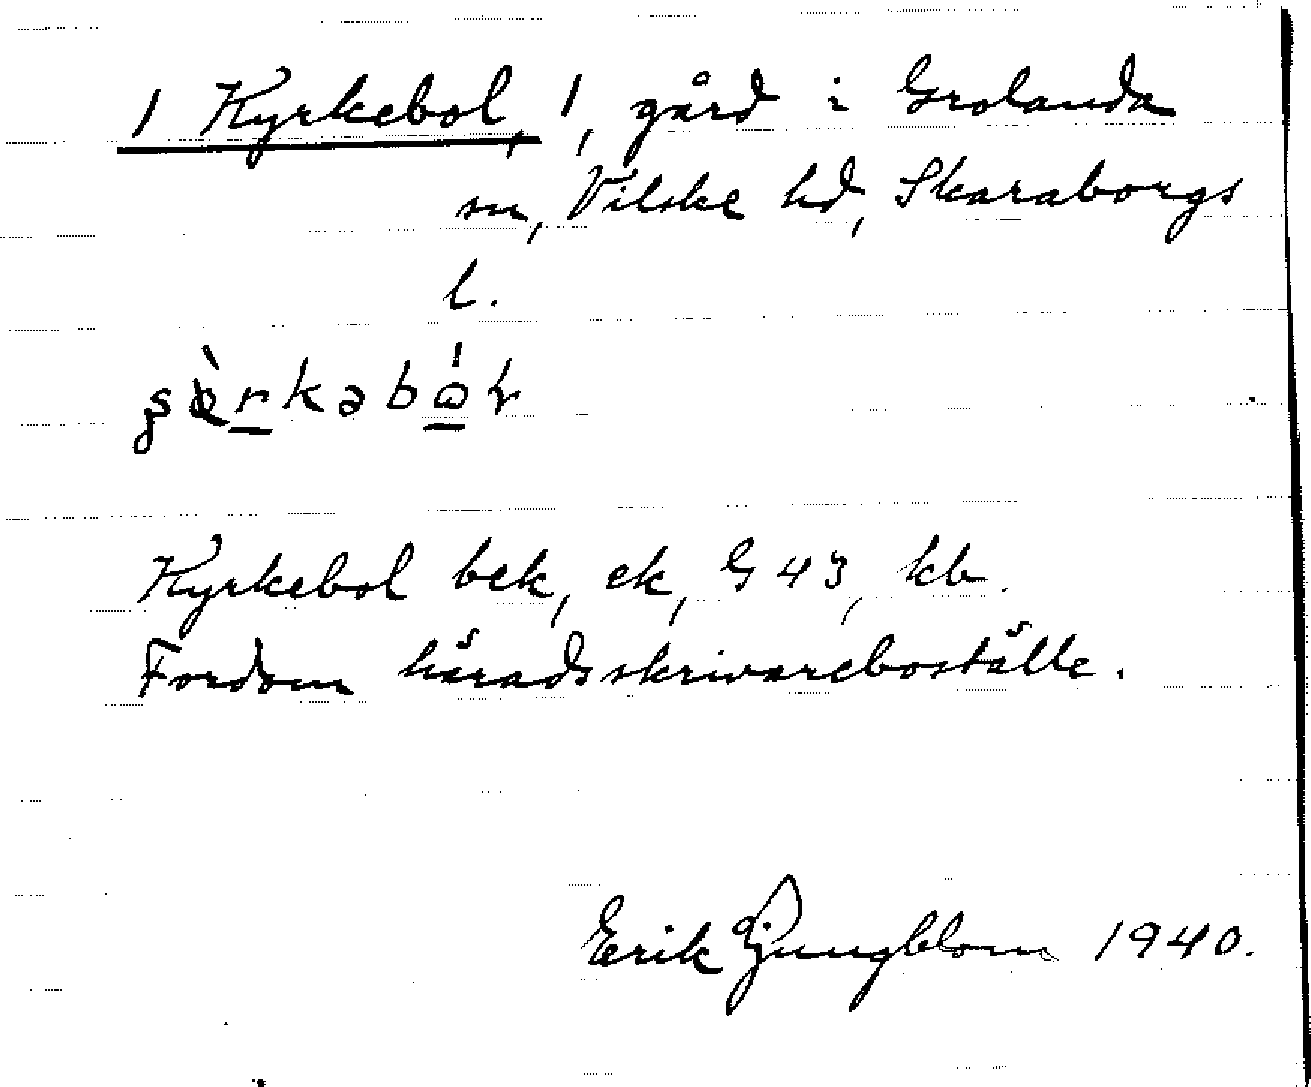 1 Kyrkebol, 1, gård i Grolanda
sn, Vilske hd, Skaraborgs
l.
Kyrkebol bek, ek, G 43, kb.
Fordom häradsskrivareboställe.
Erik Ljungblom 1940.